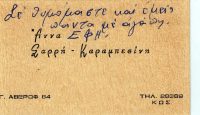 Σέ θυμόμαστε καί ἐμεῖς
πάντα μέ ἀγάπη.
Ἄννα ΕΦΗ.
Σαρρῆ - Καραμπεσίνη
Γ. ΑΒΕΡΩΦ. 84
ΤΗΛ. 28289
ΚΩΣ